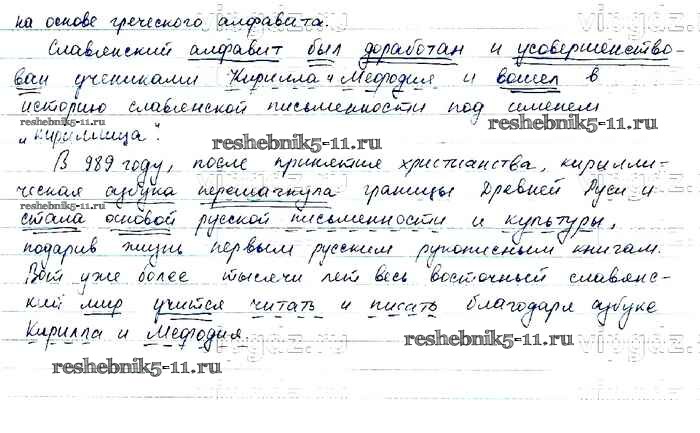 на основе греческого алфавита.
Славянский алфавит был доработан и усовершенство-
ван учениками Кирилла и Мефодия и вошел в
историю славянской письменности под именем
„кириллица".
reshebnik5-11.ru
reshebnik5-11.ru
reshebnik5-11.ru
В 989 году, после принятия христианства, кирилли-
ческая азбука перешагнула границы Древней Руси и
reshebnik5-11.ru
стала основой русской письменности и культуры,
подарив жизнь первым русским рукописным книгам.
Вот уже более тысячи лет весь восточный славянс-
кий мир учится читать и писать благодаря азбуке
Кирилла и Мефодия.
reshebnik5-11.ru
reshebnik5-11.ru